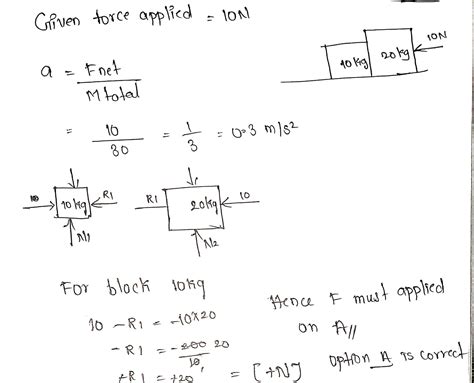 Given force applied = 10N
10kg
20kg
10N
a = Fnet
Mtotal
= 10 = 1 = 0.3 m/s²
30 3
10kg
R1
N1
R1
20kg
10
N2
For block 10kg
10 - R1 = -10x20
-R1 = -200 20
10,
+R1 = +20 = [+N]
Hence F must applied
on A//
option A is correct